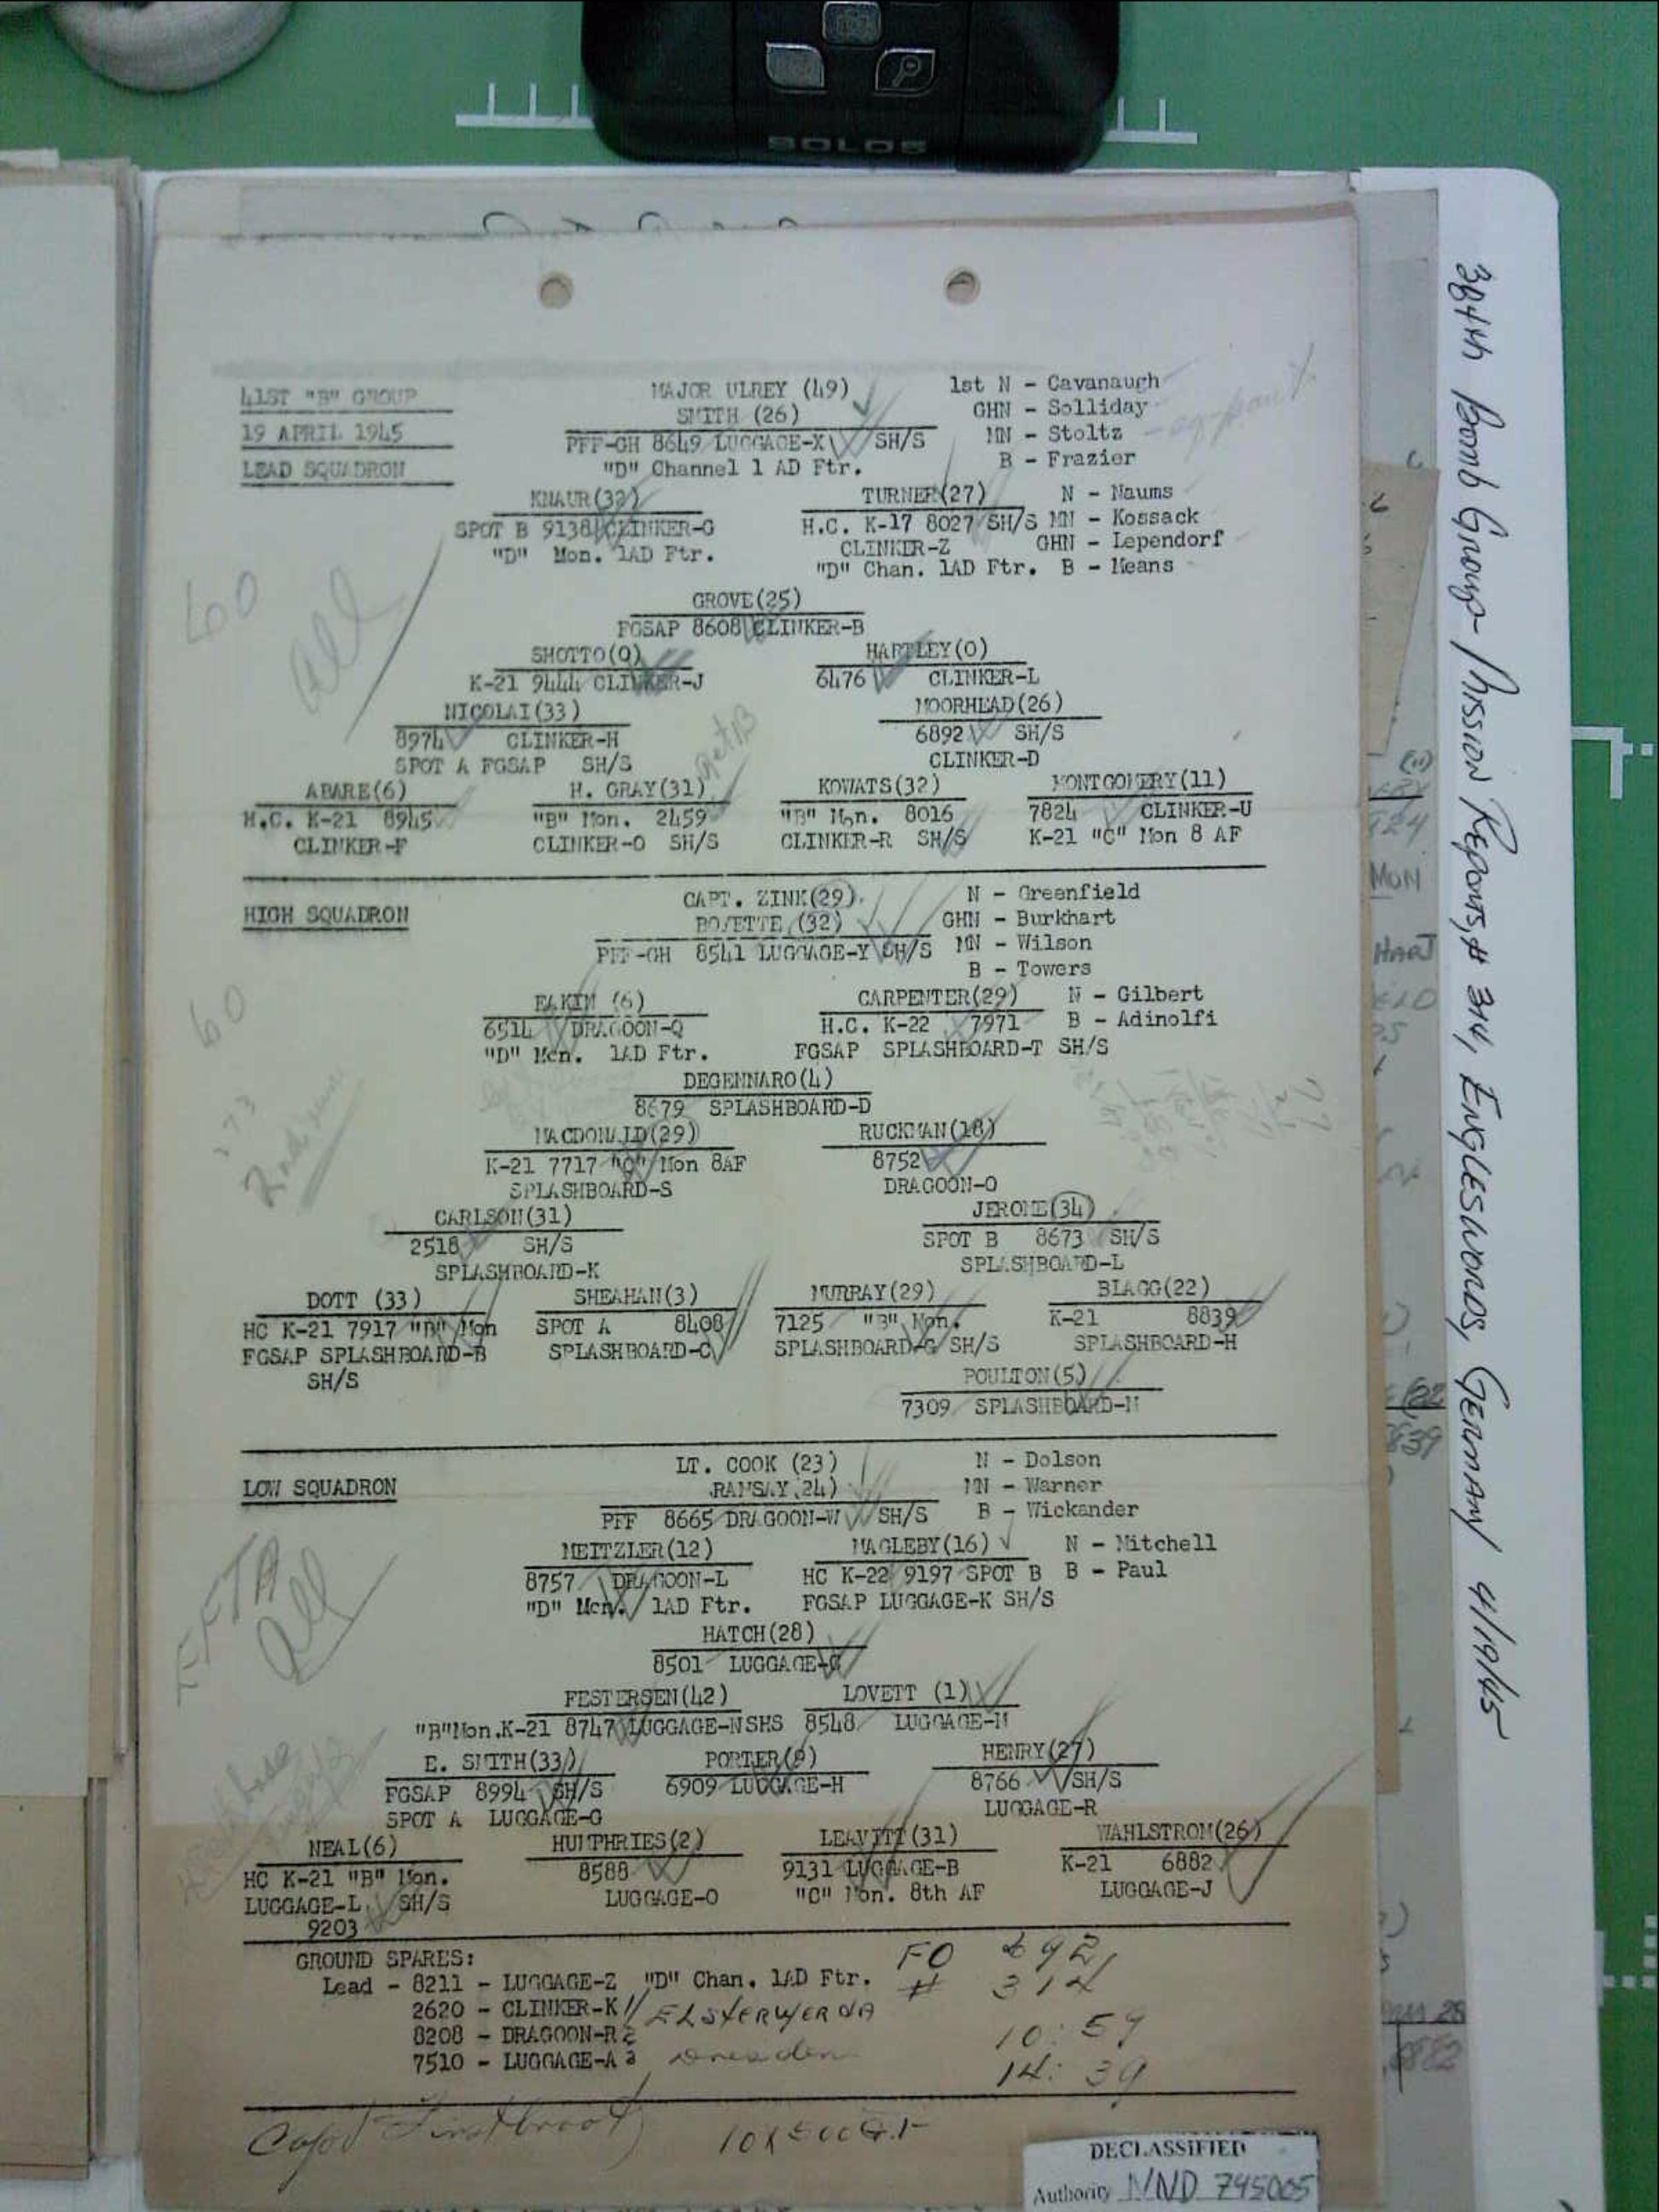 SOLOS
384th Bomb Group - Mission Reports, # 314, Engleswords, Germany 4/19/45
41ST "B" GROUP
19 APRIL 1945
LEAD SQUADRON
MAJOR ULREY (49)
SMITH (26)
PFF-GH 8649 LUGGAGE-X SH/S
"D" Channel 1 AD Ftr.
1st N - Cavanaugh
GHN - Solliday
MN - Stoltz
B - Frazier
KNAUR(32)
SPOT B 9138 CLINKER-G
"D" Mon. 1AD Ftr.
TURNER(27) N - Naums
H.C. K-17 8027 SH/S MN - Kossack
CLINKER-Z GHN - Lependorf
"D" Chan. 1AD Ftr. B - Means
60
All
GROVE(25)
FGSAP 8608 CLINKER-B
SHOTTO(0)
K-21 9444 CLINKER-J
HARTLEY(0)
6476 CLINKER-L
NICOLAI(33)
8974 CLINKER-H
SPOT A FGSAP SH/S
MOORHEAD(26)
6892 SH/S
CLINKER-D
ABARE(6)
H.C. K-21 8945
CLINKER-F
H. GRAY(31)
"B" Mon. 2459
CLINKER-O SH/S
KOWATS(32)
"B" Mon. 8016
CLINKER-R SH/S
MONTGOMERY(11)
7824 CLINKER-U
K-21 "C" Mon 8 AF
HIGH SQUADRON
CAPT. ZINK(29)
(32)
PFF-GH 8541 LUGGAGE-Y SH/S
N - Greenfield
GHN - Burkhart
MN - Wilson
B - Towers
EAKIN (6)
6514 DRAGOON-Q
"D" Mon. 1AD Ftr.
CARPENTER(29) N - Gilbert
H.C. K-22 7971 B - Adinolfi
FGSAP SPLASHBOARD-T SH/S
60
DEGENNARO(4)
8679 SPLASHBOARD-D
MACDONALD(29)
K-21 7717 "C" Mon 8AF
SPLASHBOARD-S
RUCKMAN(18)
8752
DRAGOON-O
CARLSON(31)
2518 SH/S
SPLASHBOARD-K
JEROME(34)
SPOT B 8673 SH/S
SPLASHBOARD-L
DOTT (33)
HC K-21 7917 "B" Mon
FGSAP SPLASHBOARD-B
SH/S
SHEAHAN(3)
SPOT A 8408
SPLASHBOARD-C
MURRAY(29)
7125 "B" Mon.
SPLASHBOARD-G SH/S
BLAGG(22)
K-21 8839
SPLASHBOARD-H
POULTON(5)
7309 SPLASHBOARD-N
LOW SQUADRON
LT. COOK (23)
RAMSAY(24)
PFF 8665 DRAGOON-W SH/S
N - Dolson
MN - Warner
B - Wickander
MEITZLER(12)
8757 DRAGOON-L
"D" Mon. 1AD Ftr.
MAGLEBY(16) N - Mitchell
HC K-22 9197 SPOT B B - Paul
FGSAP LUGGAGE-K SH/S
All
HATCH(28)
8501 LUGGAGE-C
FESTERSEN(42)
"B"Mon.K-21 8747 LUGGAGE-NSHS
LOVETT (1)
8548 LUGGAGE-M
E. SMITH(33)
FGSAP 8994 SH/S
SPOT A LUGGAGE-G
PORTER(9)
6909 LUGGAGE-H
HENRY(27)
8766 SH/S
LUGGAGE-R
NEAL(6)
HC K-21 "B" Mon.
LUGGAGE-L SH/S
9203
HUMPHRIES(2)
8588
LUGGAGE-O
LEAVITT(31)
9131 LUGGAGE-B
"C" Mon. 8th AF
WAHLSTROM(26)
K-21 6882
LUGGAGE-J
GROUND SPARES:
Lead - 8211 - LUGGAGE-Z "D" Chan. 1AD Ftr.
2620 - CLINKER-K Elsterwerda
8208 - DRAGOON-R 2
7510 - LUGGAGE-A 3 Dresden
FO 692
# 314
10:59
14:39
10X500G.P
DECLASSIFIED
Authority NND 745005